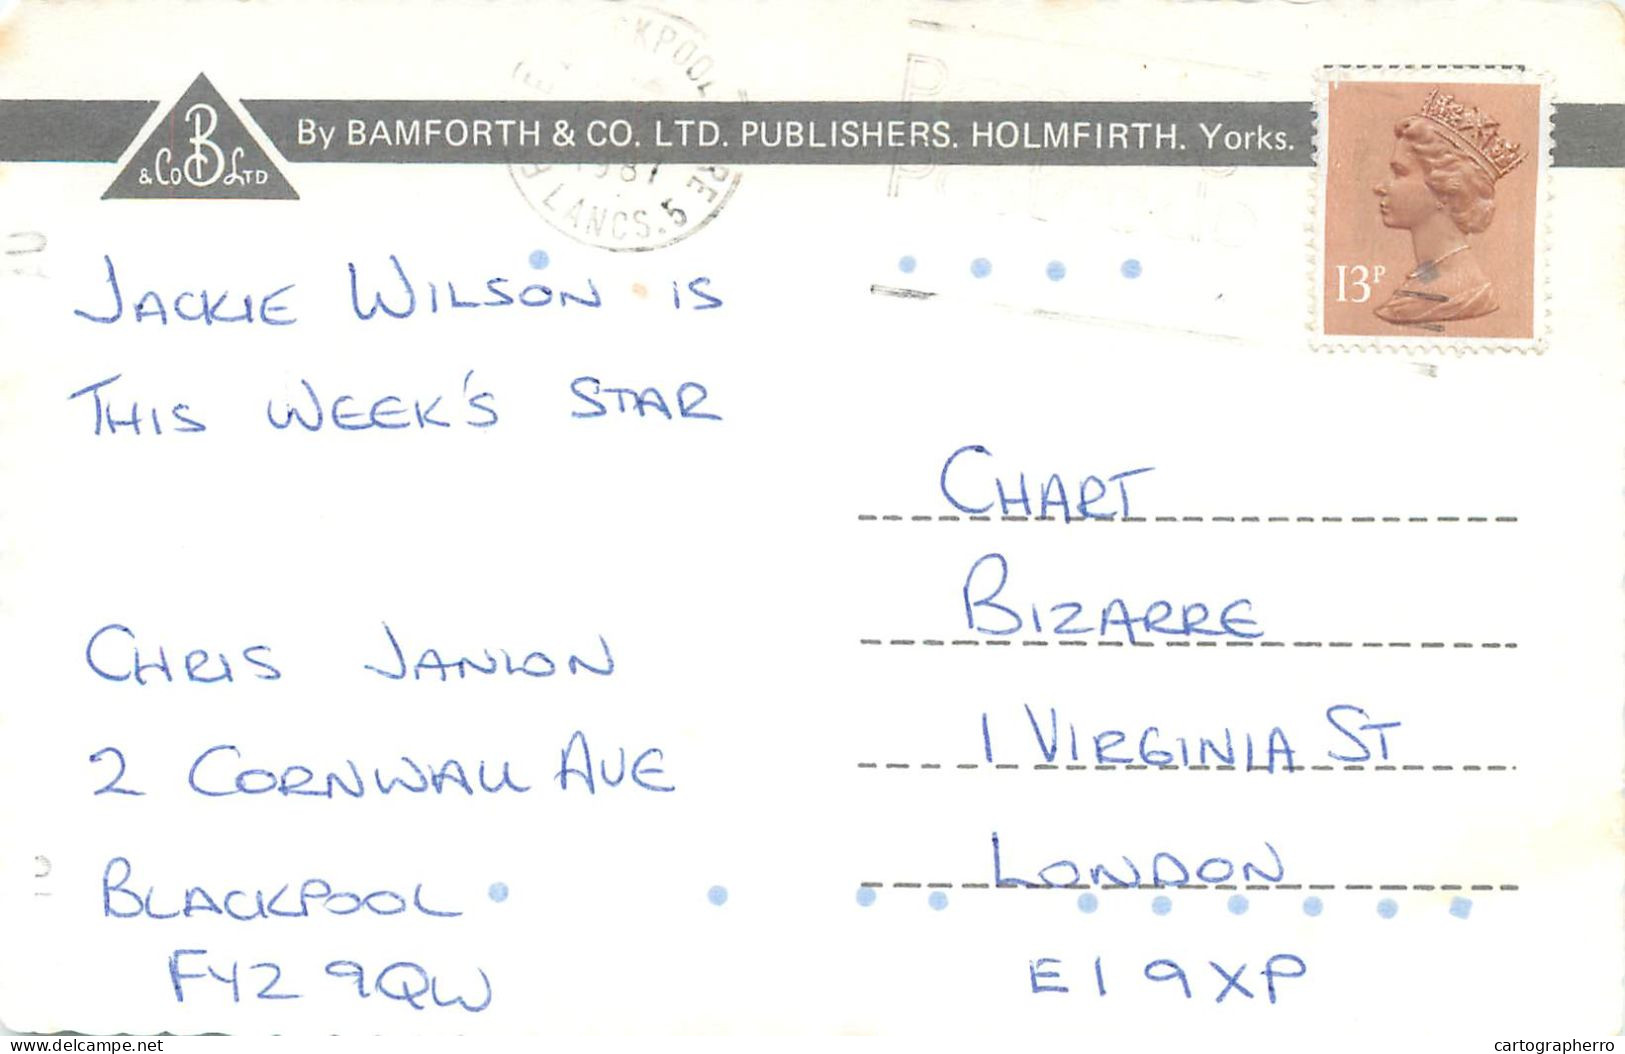 By BAMFORTH & CO. LTD. PUBLISHERS. HOLMFIRTH. Yorks.
B
& Co LTD
LANCS. 5
13P
JACKIE WILSON IS
THIS WEEK'S STAR
CHRIS JANION
2 CORNWALL AVE
BLACKPOOL
FY2 9QW
CHART
BIZARRE
1 VIRGINIA ST
LONDON
E1 9XP
www.delcampe.net
cartographerro